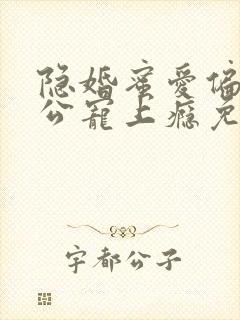 隐婚蜜爱偏
公宠上瘾免
宇都公子